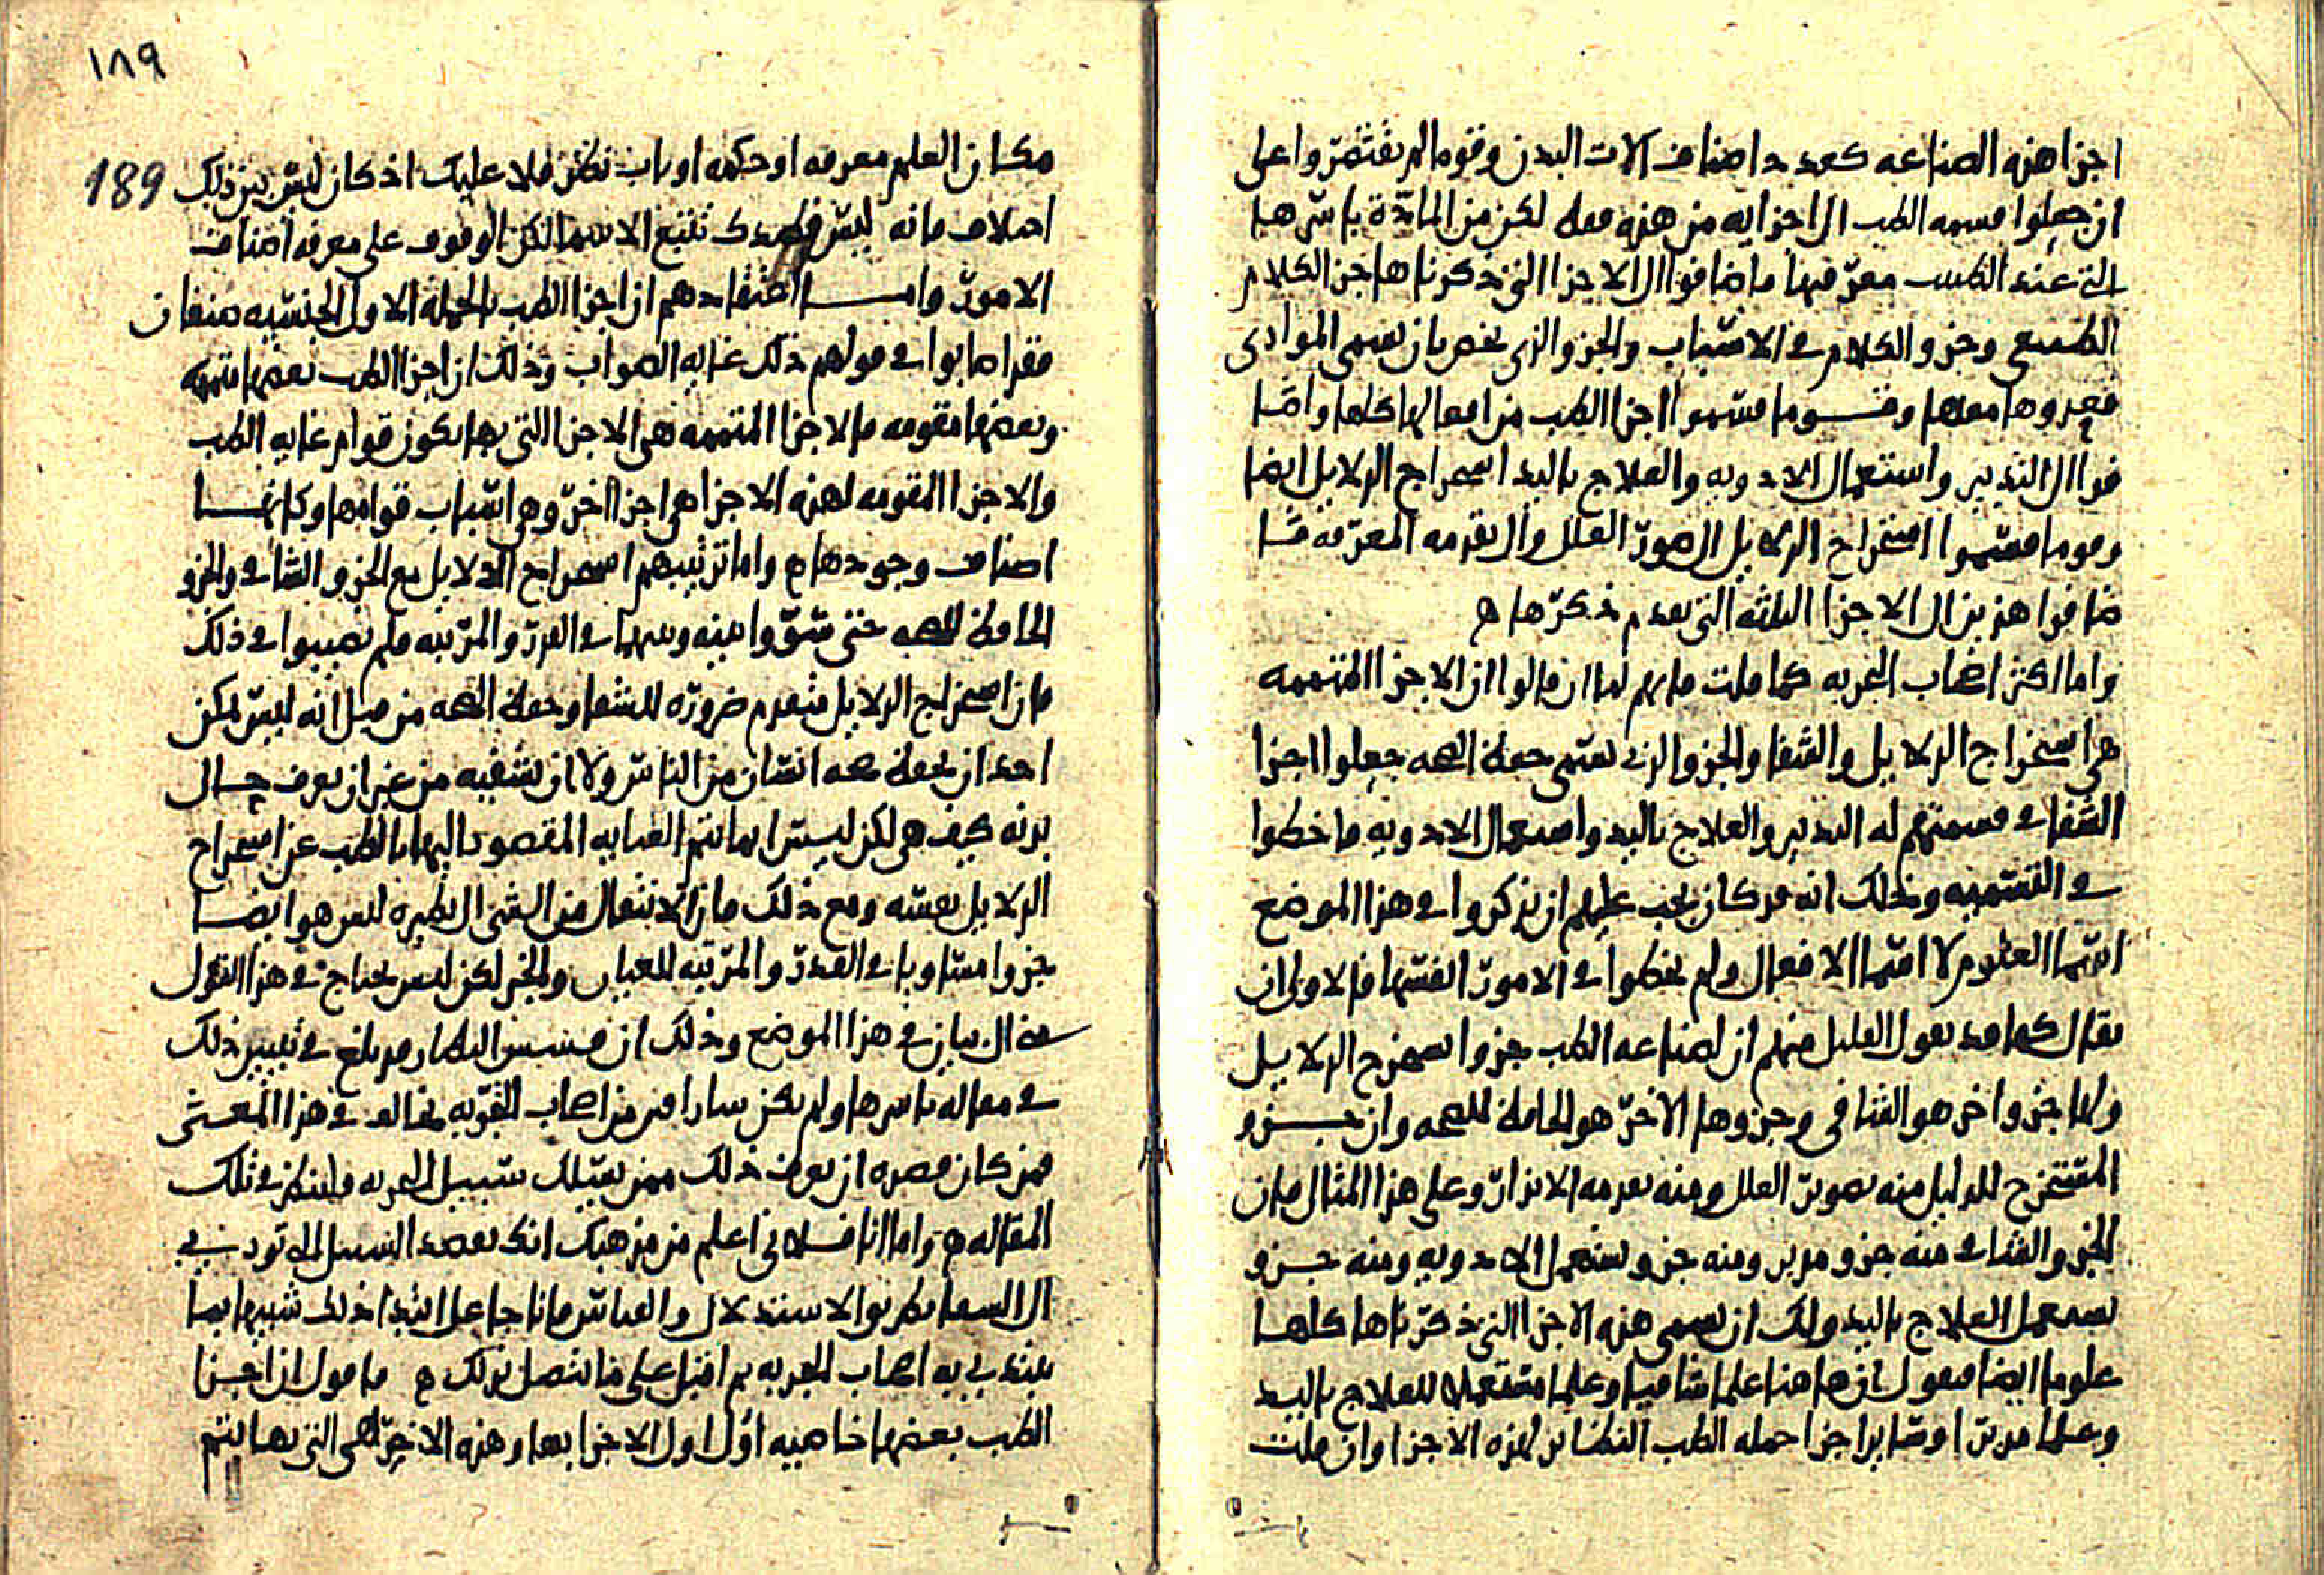 اجزا هذه الصناعه كعدد اصناف الات البدن وقوما لم يقتصروا على
ان جعلوا قسمه الطب الى اجزايه من هذه فقط لكن من المادّة باسرها
التى عند الطبيب معرّفتها فاضافوا الى الاجزا التى ذكرناها جز الكلام
الطبيعى وجزو الكلام فى الاسباب والجزو الذى يختص بان يسمى المواذى
وقوما قسّموا اجزا الطب من افعالها كلها وامّا
فزا الى التدبير واستعمال الادويه والعلاج باليد استخراج الدلايل ايضا
وقوما قسّموا استخراج الدلايل الى صورّ العلل والى تقدمه المعرّفه مّا
ضافوا هذين الى الاجزا الثلثه التى تقدم ذكرّها ه
واما اكثر اصحاب التجربه كما قلت فانهم لما ان قالوا ان الاجزا المتممه
هى استخراج الدلايل والشفا والجزو الذى يسّمى حفظ الصحه جعلوا اجزا
الشفا فى قسمتهم له التدبير والعلاج باليد واستعمال الادويه فاخطوا
فى التسّميه وذلك انه قد كان يجب عليهم ان يذكروا فى هذا الموضع
اسّما العلوم لا اسّما الافعال ولم يخطوا فى الامورّ انفسّها فالاولى ان
يقال كما قد يقول القليل منهم ان لصناعه الطب جزوا يستخرج الدلايل
ولها جزو اخر هو الشافى وجزوها الاخرّ هو الحافظ للصحه وان جـزو
المسّتخرج للدليل منه بصورّ العلل ومنه تقدمه الانذارّ وعلى هذا المثال فان
الجزو الشافى منه جزو مدبر ومنه جزو يستعمل الادويه ومنه جـزو
يستعمل العلاج باليد ولك ان تسمى هذه الاجزا التى ذكرّناها كلها
علوما ايضا فتقول ان هاهنا علما شافيا وعلما مستعملا للعلاج باليد
وعلما مدبرّا وسّاير اجزا جمله الطب النظاير لهذه الاجزا وان قلت
١٨٩
189
مكان العلم معرفه او حكمه او باب نظر فلا عليك اذ كان ليسّ بين ذلك
اختلاف فانه ليسّ قصدك تتبع الاسما لكن الوقوف على معرفه اصناف
الامورّ وامـا اعتقادهم ان اجزا الطب بالجمله الاول الجنسّيه صنفان
فقد اصابوا فى قولهم ذلك غايه الصواب وذلك ان اجزا الطب بعضها متممه
وبعضها مقومه فالاجزا المتممه هى الاجزا التى بها يكون قوام غايه الطب
والاجزا المقومه لهذه الاجزا هى اجزا اخرّ وهى اسّباب قوامها وكانهـا
اصناف وجودها ه واما ترتيبهم استخراج الدلايل مع الجزو الشافى والجزو
الحافظ للصحه حتى سّوّوا بينه وبينهما فى القدرّ والمرّتبه فلم يصيبوا فى ذلك
فان استخراج الدلايل متقدم ضرورّه للشفا وحفظ الصحه من قبل انه ليسّ يمكن
احد ان يحفظ صحه انسّان من الناسّ ولا ان يشفيه من غير ان يعرف حـال
بدنه كيف هى لكن ليسّ انما تتم الغايه المقصود اليها بالطب عن استخراج
الدلايل نفسّه ومع ذلك فان الانتقال من الشى الى نظيره ليس هو ايضـا
جزوا مسّاويا فى القدرّ والمرّتبه للقياس والخبر لكن ليس يحتاج فى هذا القول
الى بيان فى هذا الموضع وذلك ان قد بلغ فى تبيين ذلك
فى مقاله باسرها ولم يكن من اصحاب التجرّبه يخالف فى هذا المعـنى
فمن كان قصده ان يعرف ذلك ممن يسّلك سّبيل التجربه فلينظر فى تلك
المقاله ه واما انا فـلانى اعلم من مذهبك انك تقصد السبيل التى تودى بى
الى الشفا بطريق الاستدلال والقياسّ فانا جاعل ابتدا ذلك شبيها بما
يبتدى به اصحاب التجربه ثم اقبل على ما يتصل بذلك ه فاقول ان اجـزا
الطب بعضها خاصيه اوّل اول الاجزا بها وهذه الاخرّ هى التى بها يتم